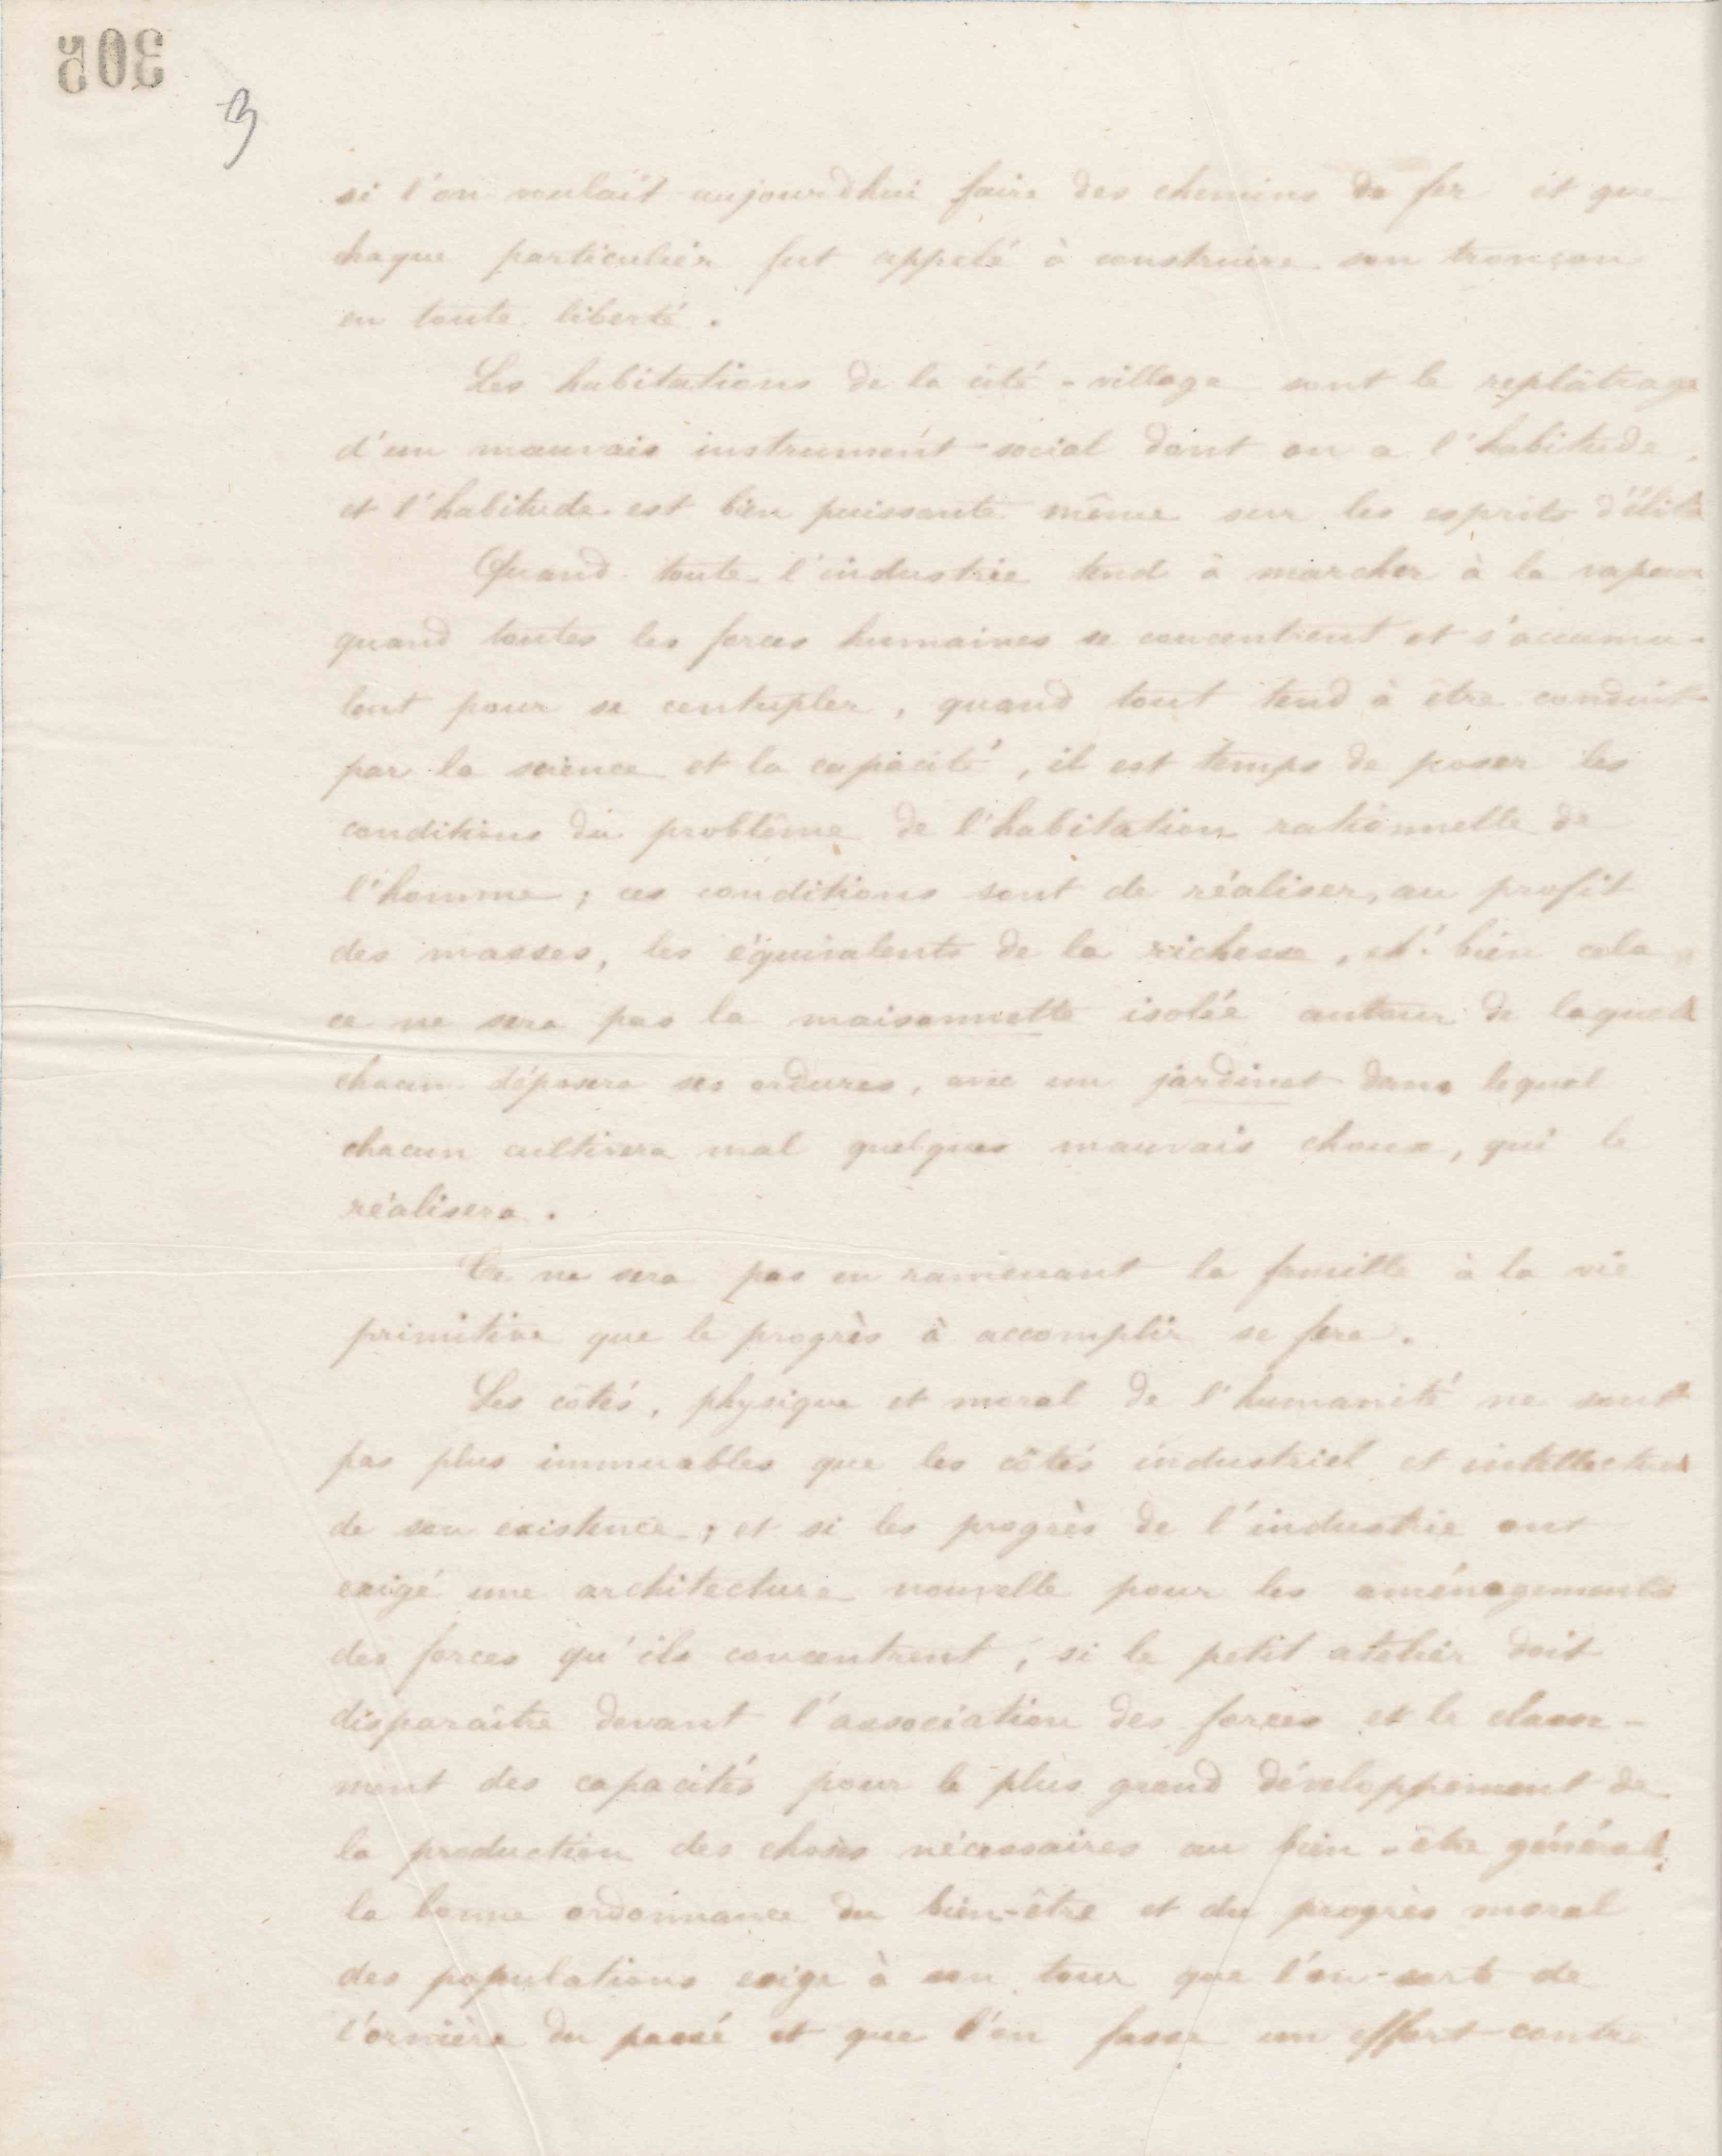 305
3
si l'on voulait aujourd'hui faire des chemins de fer et que
chaque particulier fut appelé à construire son tronçon
en toute liberté.
Les habitations de la cité-village sont le replâtrage
d'un mauvais instrument social dont on a l'habitude,
et l'habitude est bien puissante même sur les esprits d'élite
Quand toute l'industrie tend à marcher à la vapeur
quand toutes les forces humaines se concentrent et s'accumu-
lent pour se centupler, quand tout tend à être conduit
par la science et la capacité, il est temps de poser les
conditions du problème de l'habitation rationnelle de
l'homme; ces conditions sont de réaliser, au profit
des masses, les équivalents de la richesse, eh! bien cela
ce ne sera pas la maisonnette isolée autour de laquell
chacun déposera ses ordures, avec un jardinet dans lequel
chacun cultivera mal quelques mauvais choux, qui le
réalisera.
Ce ne sera pas en ramenant la famille à la vie
primitive que le progrès à accomplir se fera.
Les côtés, physique et moral de l'humanité ne sont
pas plus immuables que les côtés industriel et intellectuel
de son existence; et si les progrès de l'industrie ont
exigé une architecture nouvelle pour les aménagements
des forces qu'ils concentrent, si le petit atelier doit
disparaître devant l'association des forces et le classe-
ment des capacités pour le plus grand développement de
la production des choses nécessaires au bien-être général;
la bonne ordonnance du bien-être et du progrès moral
des populations exige à son tour que l'on sorte de
l'ornière du passé et que l'on fasse un effort contre